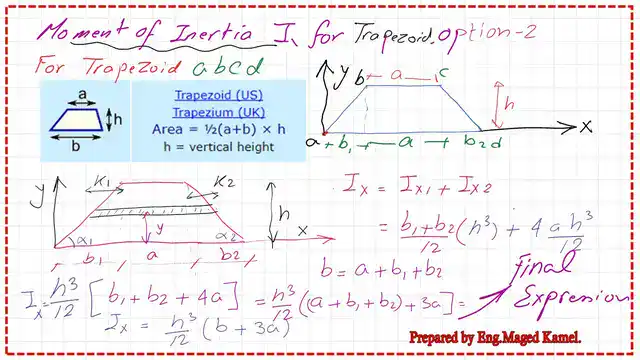 Moment of Inertia Ix for Trapezoid, option-2
For Trapezoid abcd
a
h
b
Trapezoid (US)
Trapezium (UK)
Area = ½(a+b) × h
h = vertical height
y
b
a
c
h
x
a
b1
a
b2
d
y
K1
K2
h
y
α1
α2
x
b1
a
b2
Ix = Ix1 + Ix2
= b1+b2/12 (h³) + 4 a h³/12
b = a+b1+b2
Ix = h³/12 [b1+b2+4a] = h³/12 ((a+b1+b2)+3a) =
Final
Expression
Ix = h³/12 (b+3a)
Prepared by Eng.Maged Kamel.